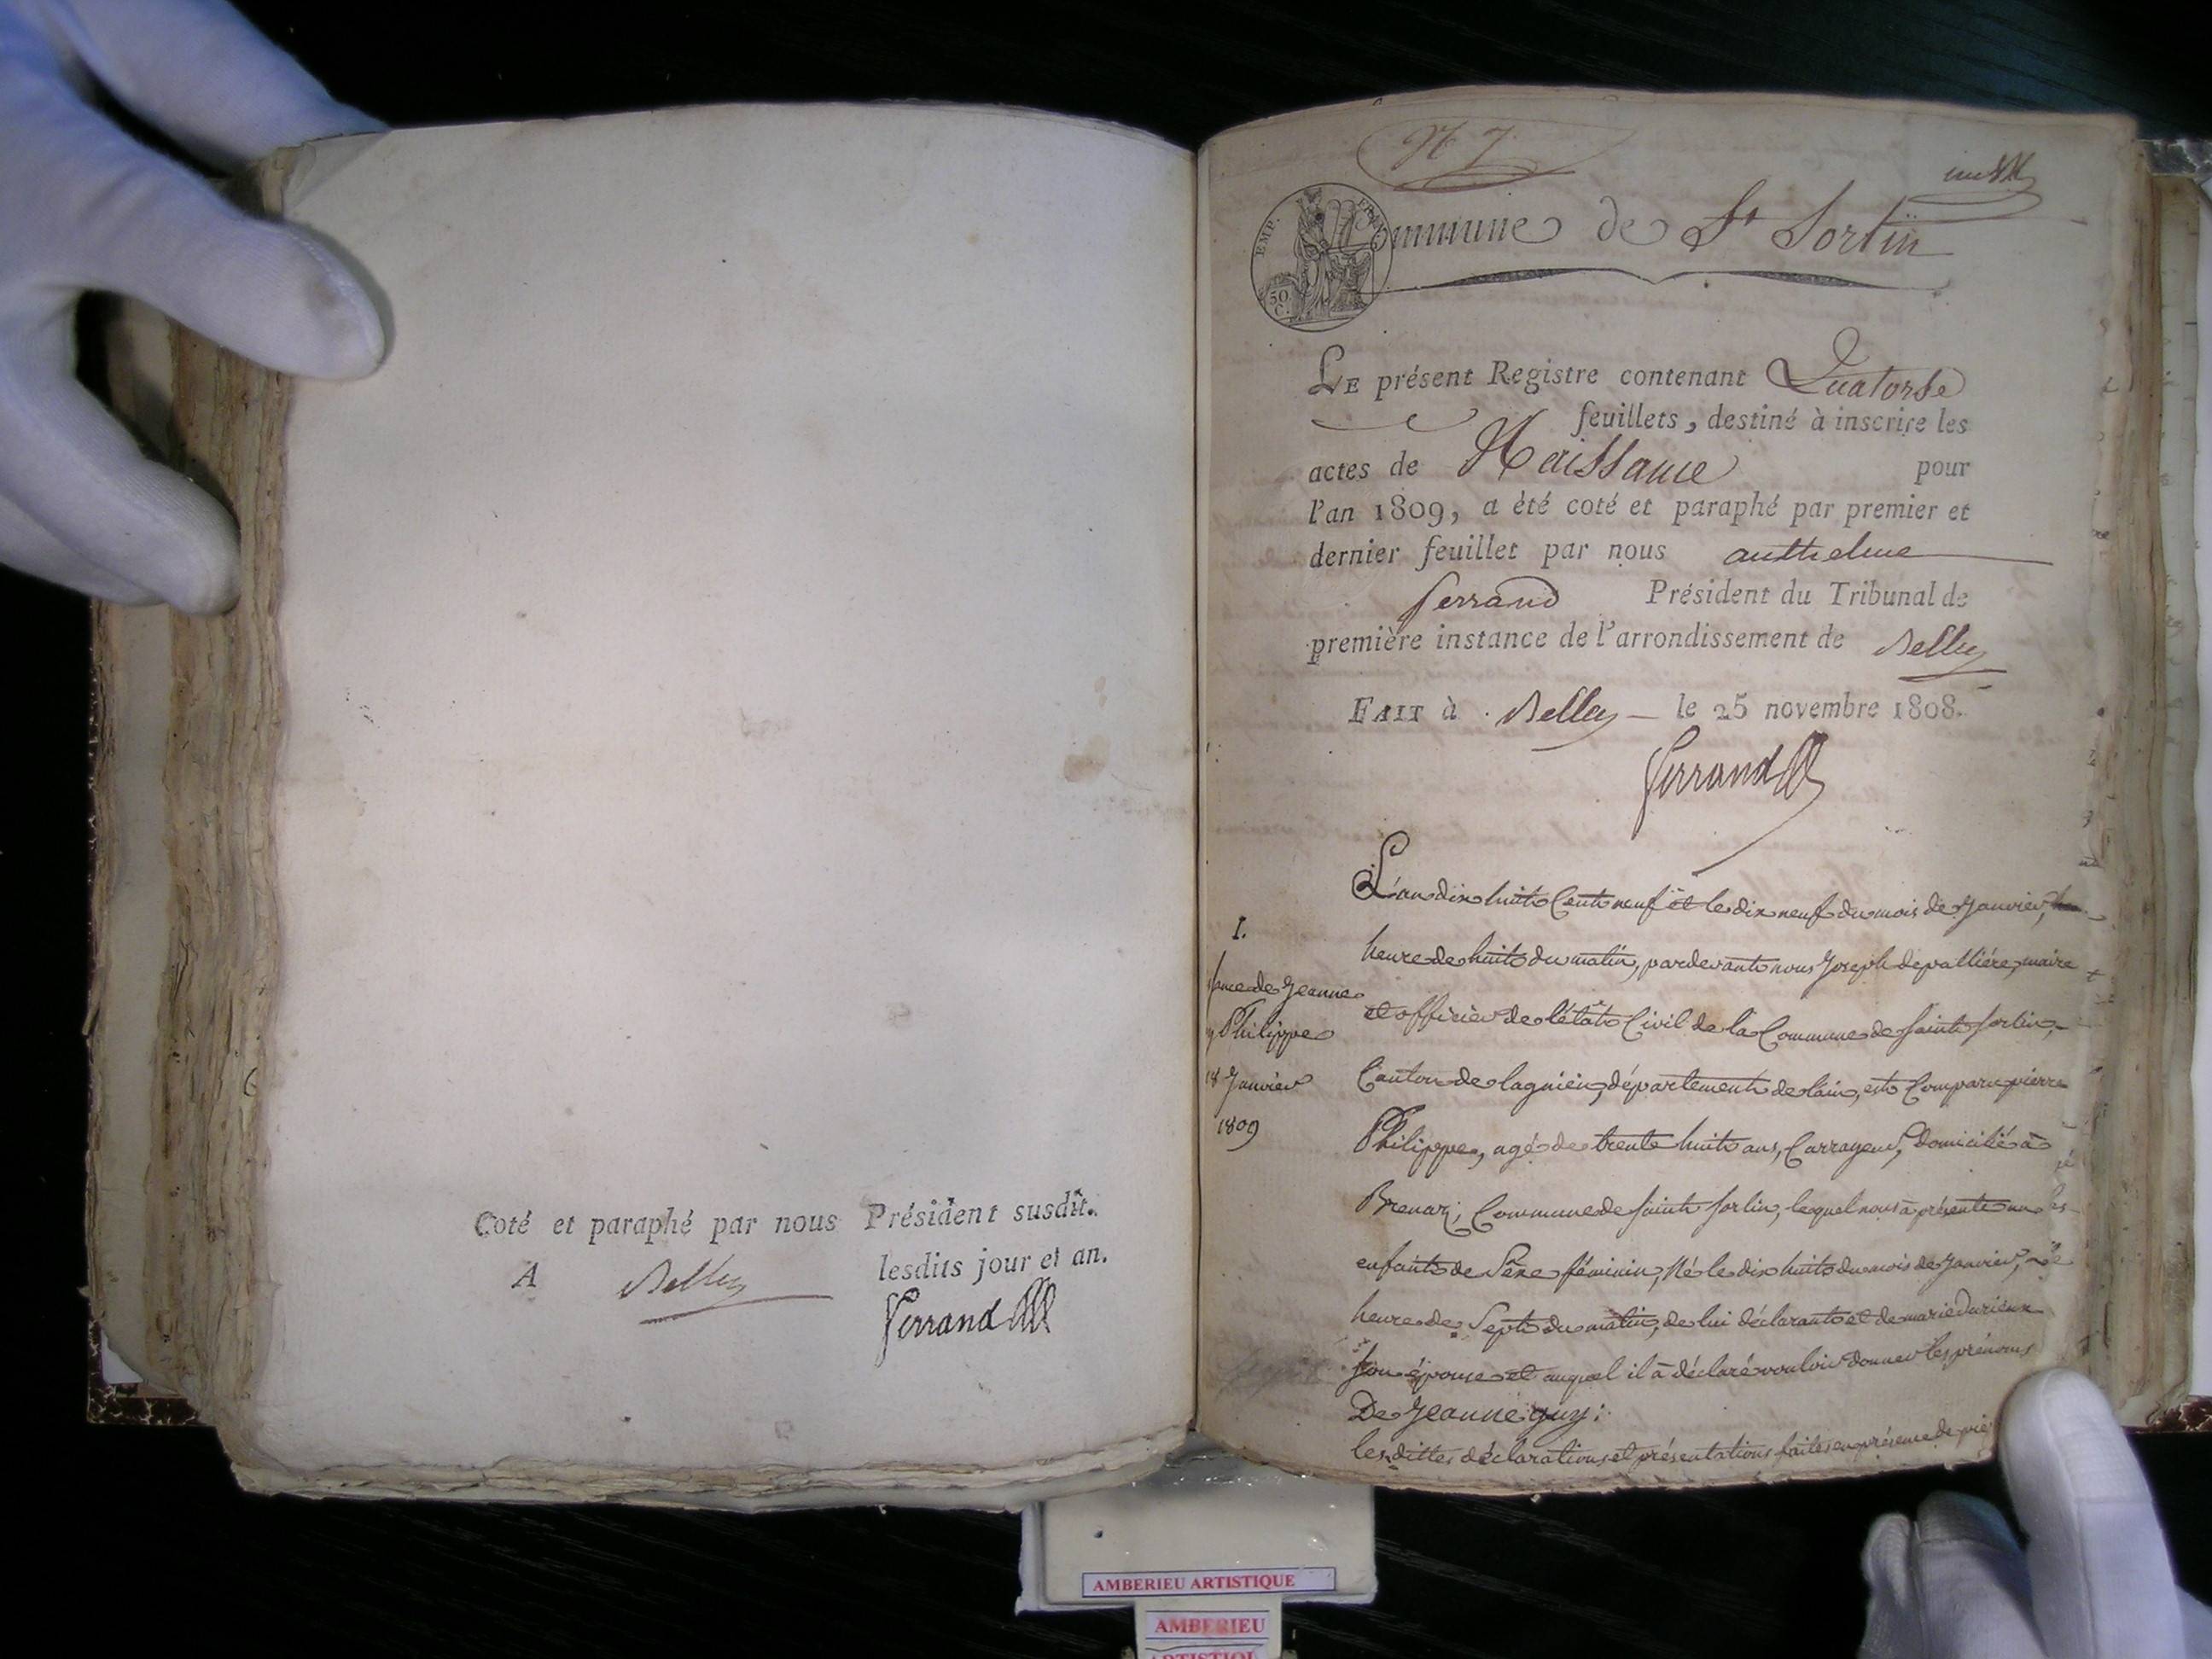 Coté et paraphé par nous Président susdit.
A Belley lesdits jour et an.
Ferrand
N 7
EMP. FRAN
50
C.
Commune de St Sortin
LE présent Registre contenant Quatorse
feuillets, destiné à inscrire les
actes de Naissance pour
l'an 1809, a été coté et paraphé par premier et
dernier feuillet par nous anthelme
ferrand Président du Tribunal de
première instance de l'arrondissement de Belley
FAIT à Belley le 25 novembre 1808.
Ferrand
I.
de Jeanne
Philippe
18 Janvier
1809
L'an dix huit Cent neuf et le dix neuf du mois de Janvier,
heure de huit du matin, pardevant nous Joseph depalliére, maire
et officier de l'état Civil de la Commune de saint sortin,
Canton de lagnieu, département de l'ain, est Comparu pierre
Philippe, agé de trente huit ans, Carrayeur, domicilié à
Brenaz, Commune de saint sortin, lequel nous à présenté un
enfant de Séxe féminin, Né le dix huit du mois de Janvier,
heure de Sept du matin, de lui déclarant et de marie durieux
son épouse et auquel il à déclaré vouloir donner les prénoms
De Jeanne guy:
les dittes déclaration et présentation faites en présence de
AMBERIEU ARTISTIQUE
AMBERIEU
ARTISTIQUE